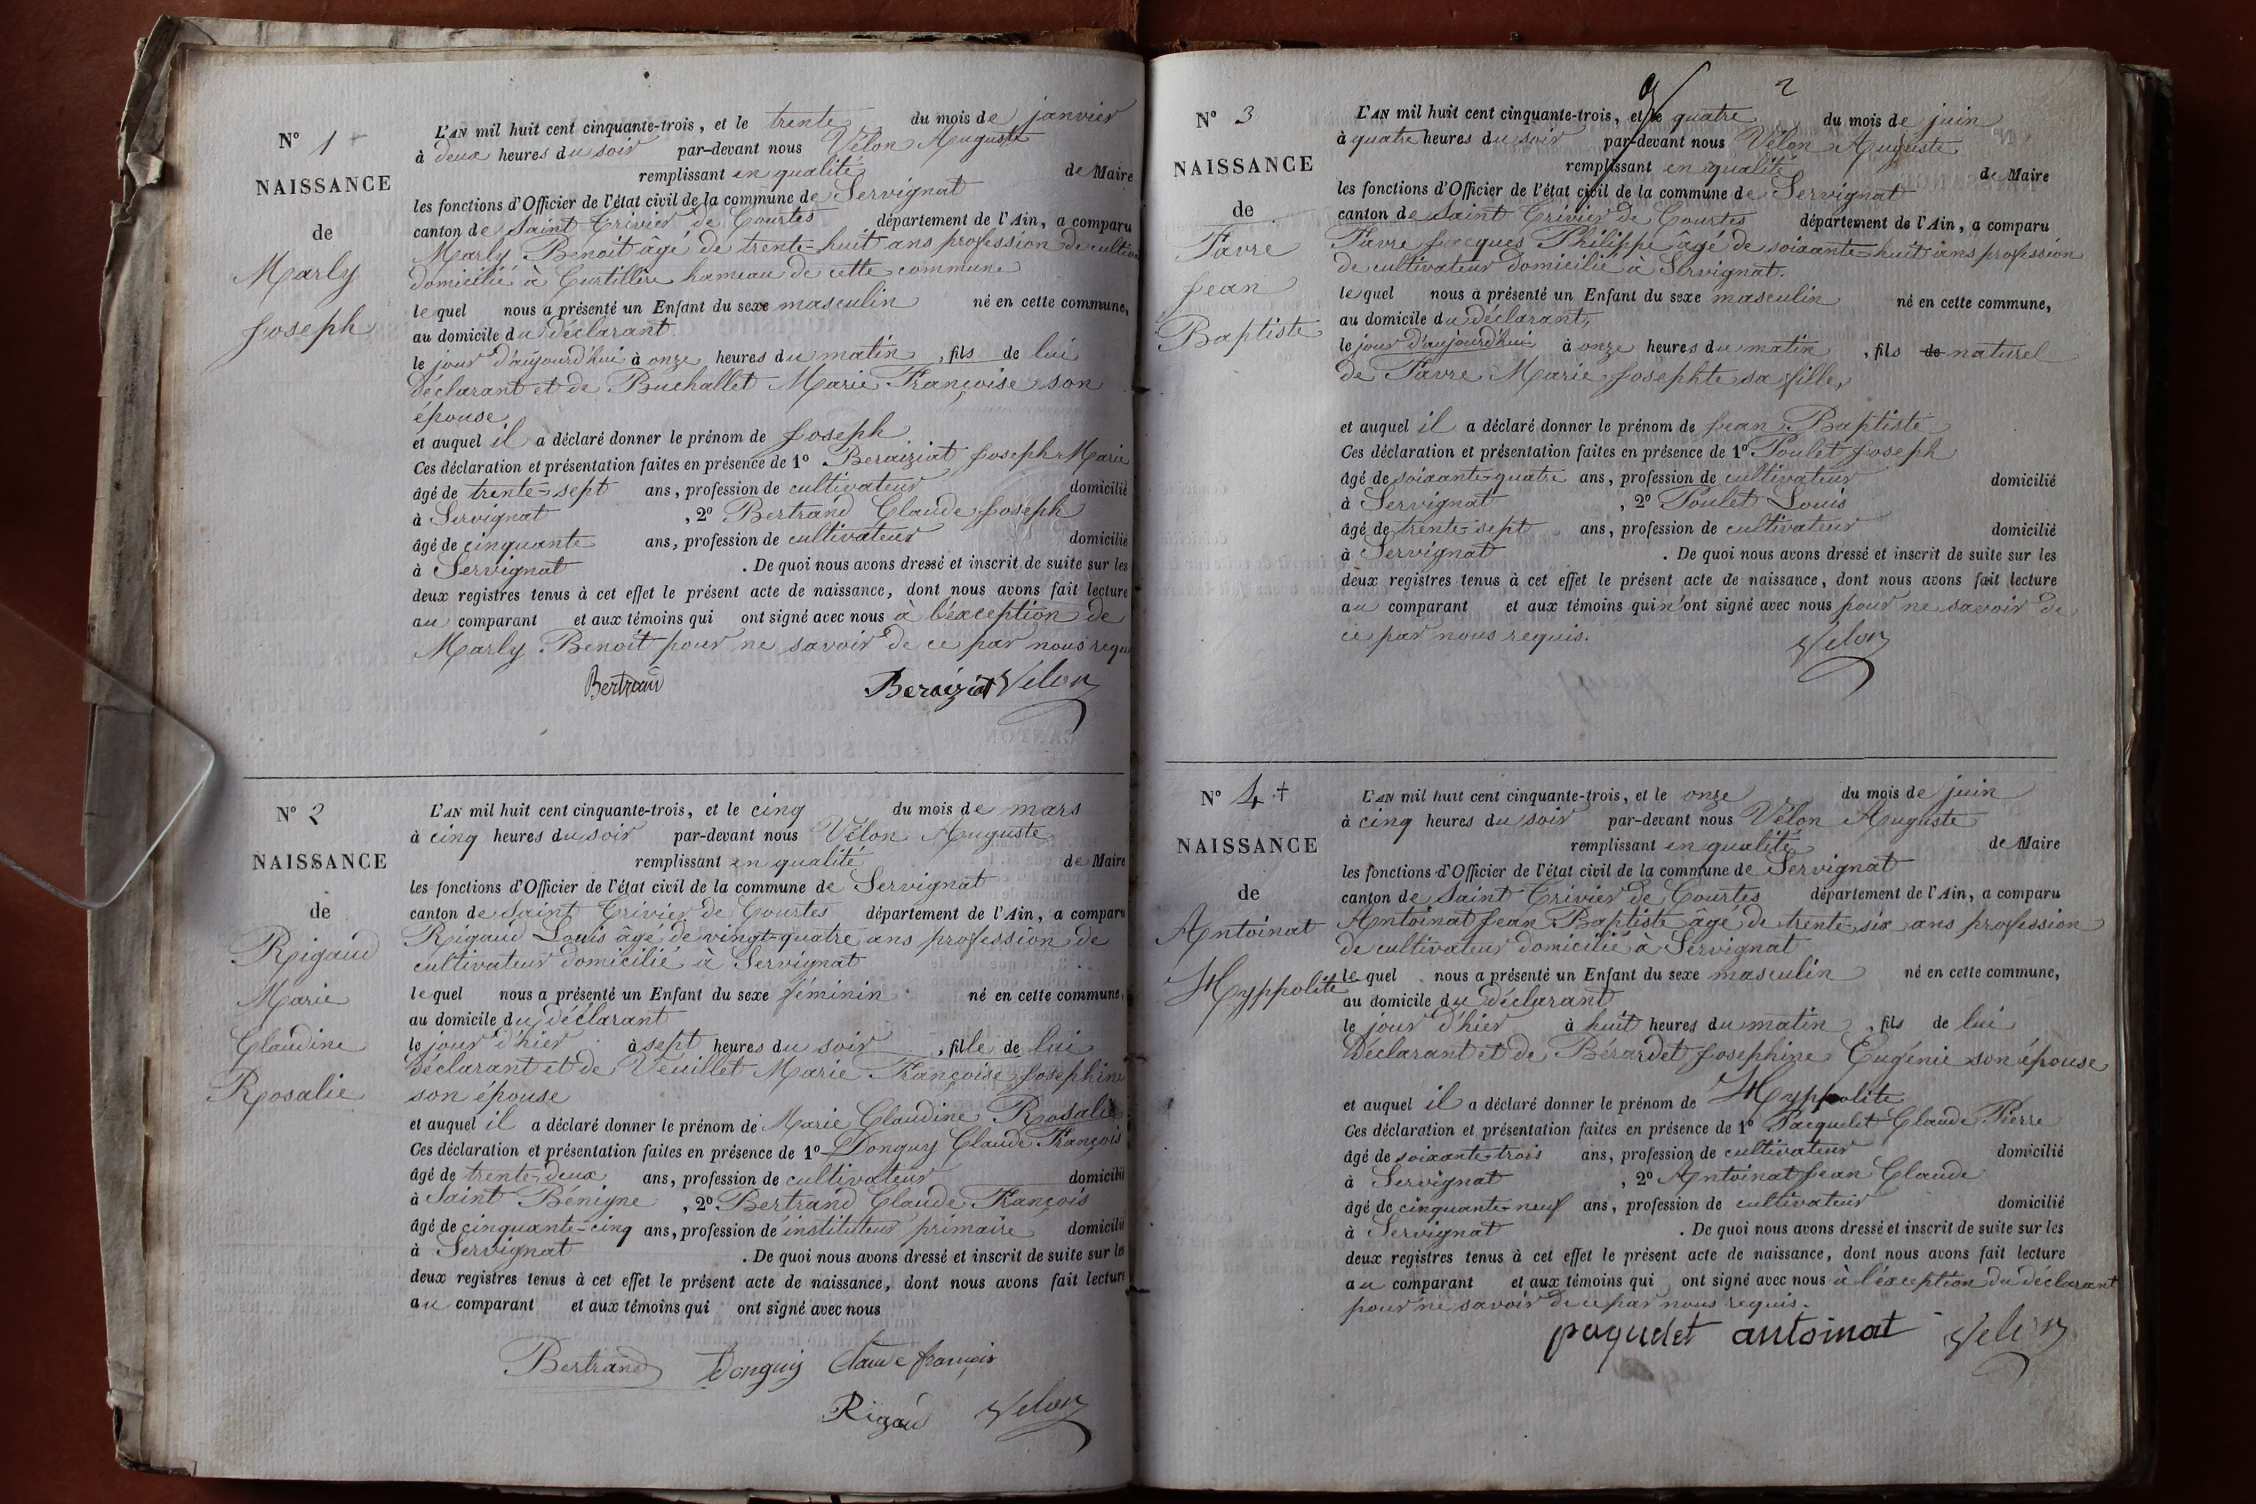 N° 1
NAISSANCE
de
Marly
Joseph
L'AN mil huit cent cinquante-trois, et le trente du mois de janvier
à deux heures du soir par-devant nous Vélon Auguste
remplissant en qualité de Maire
les fonctions d'Officier de l'état civil de la commune de Servignat
canton de Saint Trivier de Courtes département de l'Ain, a comparu
Marly Benoit âgé de trente-huit ans profession de cultiva
domicilié à Curtillère hameau de cette commune
lequel nous a présenté un Enfant du sexe masculin né en cette commune,
au domicile du déclarant
le jour d'aujourd'hui à onze heures du matin, fils de lui
déclarant et de Buchallet Marie Françoise son
épouse
et auquel il a déclaré donner le prénom de Joseph
Ces déclaration et présentation faites en présence de 1° Beraiziat Joseph Marie
âgé de trente-sept ans, profession de cultivateur domicilié
à Servignat, 2° Bertrand Claude Joseph
âgé de cinquante ans, profession de cultivateur domicilié
à Servignat. De quoi nous avons dressé et inscrit de suite sur les
deux registres tenus à cet effet le présent acte de naissance, dont nous avons fait lecture
au comparant et aux témoins qui ont signé avec nous à l'éxception de
Marly Benoit pour ne savoir de ce par nous requ
Bertrand Beraiziat Velon
N° 2
NAISSANCE
de
Rigaud
Marie
Claudine
Rosalie
L'AN mil huit cent cinquante-trois, et le cinq du mois de mars
à cinq heures du soir par-devant nous Vélon Auguste
remplissant en qualité de Maire
les fonctions d'Officier de l'état civil de la commune de Servignat
canton de Saint Trivier de Courtes département de l'Ain, a comparu
Rigaud Louis âgé de vingt-quatre ans profession de
cultivateur domicilié à Servignat
lequel nous a présenté un Enfant du sexe féminin né en cette commune,
au domicile du déclarant
le jour d'hier à sept heures du soir, fille de lui
déclarant et de Veuillet Marie Françoise Josephine
son épouse
et auquel il a déclaré donner le prénom de Marie Claudine Rosalie
Ces déclaration et présentation faites en présence de 1° Donguy Claude François
âgé de trente-deux ans, profession de cultivateur domicilié
à Saint Bénigne, 2° Bertrand Claude François
âgé de cinquante-cinq ans, profession de instituteur primaire domicilié
à Servignat. De quoi nous avons dressé et inscrit de suite sur les
deux registres tenus à cet effet le présent acte de naissance, dont nous avons fait lecture
au comparant et aux témoins qui ont signé avec nous
Bertrand Donguy Claude françois
Rigaud Velon
2
N° 3
NAISSANCE
de
Favre
Jean
Baptiste
L'AN mil huit cent cinquante-trois, et le quatre du mois de juin
à quatre heures du soir par-devant nous Vélon Auguste
remplissant en qualité de Maire
les fonctions d'Officier de l'état civil de la commune de Servignat
canton de Saint Trivier de Courtes département de l'Ain, a comparu
Favre Jacques Philippe âgé de soixante-huit ans profession
de cultivateur domicilié à Servignat.
lequel nous a présenté un Enfant du sexe masculin né en cette commune,
au domicile du déclarant,
le jour d'aujourd'hui à onze heures du matin, fils de naturel
de Favre Marie Josephte sa fille,
et auquel il a déclaré donner le prénom de Jean Baptiste
Ces déclaration et présentation faites en présence de 1° Poulet Joseph
âgé de soixante-quatre ans, profession de cultivateur domicilié
à Servignat, 2° Poulet Louis
âgé de trente-sept ans, profession de cultivateur domicilié
à Servignat. De quoi nous avons dressé et inscrit de suite sur les
deux registres tenus à cet effet le présent acte de naissance, dont nous avons fait lecture
au comparant et aux témoins qui n'ont signé avec nous pour ne savoir de
ce par nous requis.
Velon
N° 4 +
NAISSANCE
de
Antoinat
Hyppolite
L'AN mil huit cent cinquante-trois, et le onze du mois de juin
à cinq heures du soir par-devant nous Vélon Auguste
remplissant en qualité de Maire
les fonctions d'Officier de l'état civil de la commune de Servignat
canton de Saint Trivier de Courtes département de l'Ain, a comparu
Antoinat Jean Baptiste âgé de trente six ans profession
de cultivateur domicilié à Servignat
lequel nous a présenté un Enfant du sexe masculin né en cette commune,
au domicile du déclarant
le jour d'hier à huit heures du matin, fils de lui
déclarant et de Bérardet Josephine Eugénie son épouse
et auquel il a déclaré donner le prénom de Hyppolite
Ces déclaration et présentation faites en présence de 1° Pacquelet Claude Pierre
âgé de soixante-trois ans, profession de cultivateur domicilié
à Servignat, 2° Antoinat Jean Claude
âgé de cinquante-neuf ans, profession de cultivateur domicilié
à Servignat. De quoi nous avons dressé et inscrit de suite sur les
deux registres tenus à cet effet le présent acte de naissance, dont nous avons fait lecture
au comparant et aux témoins qui ont signé avec nous à l'éxception du déclarant
pour ne savoir de ce par nous requis.
paquelet antoinat Velon